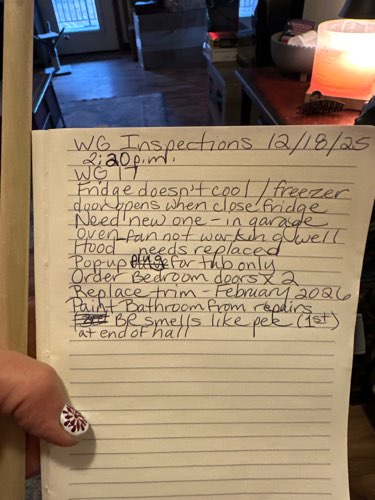 WG Inspections 12/18/25
2:20 p.m.
WG 17
Fridge doesn't cool / freezer
door opens when close fridge
Need new one - in garage
Oven fan not working well
Hood needs replaced
Pop-up for tub only
Order Bedroom doors x 2
Replace trim - February 2026
Paint Bathroom from repairs
BR smells like pee (1st)
at end of hall